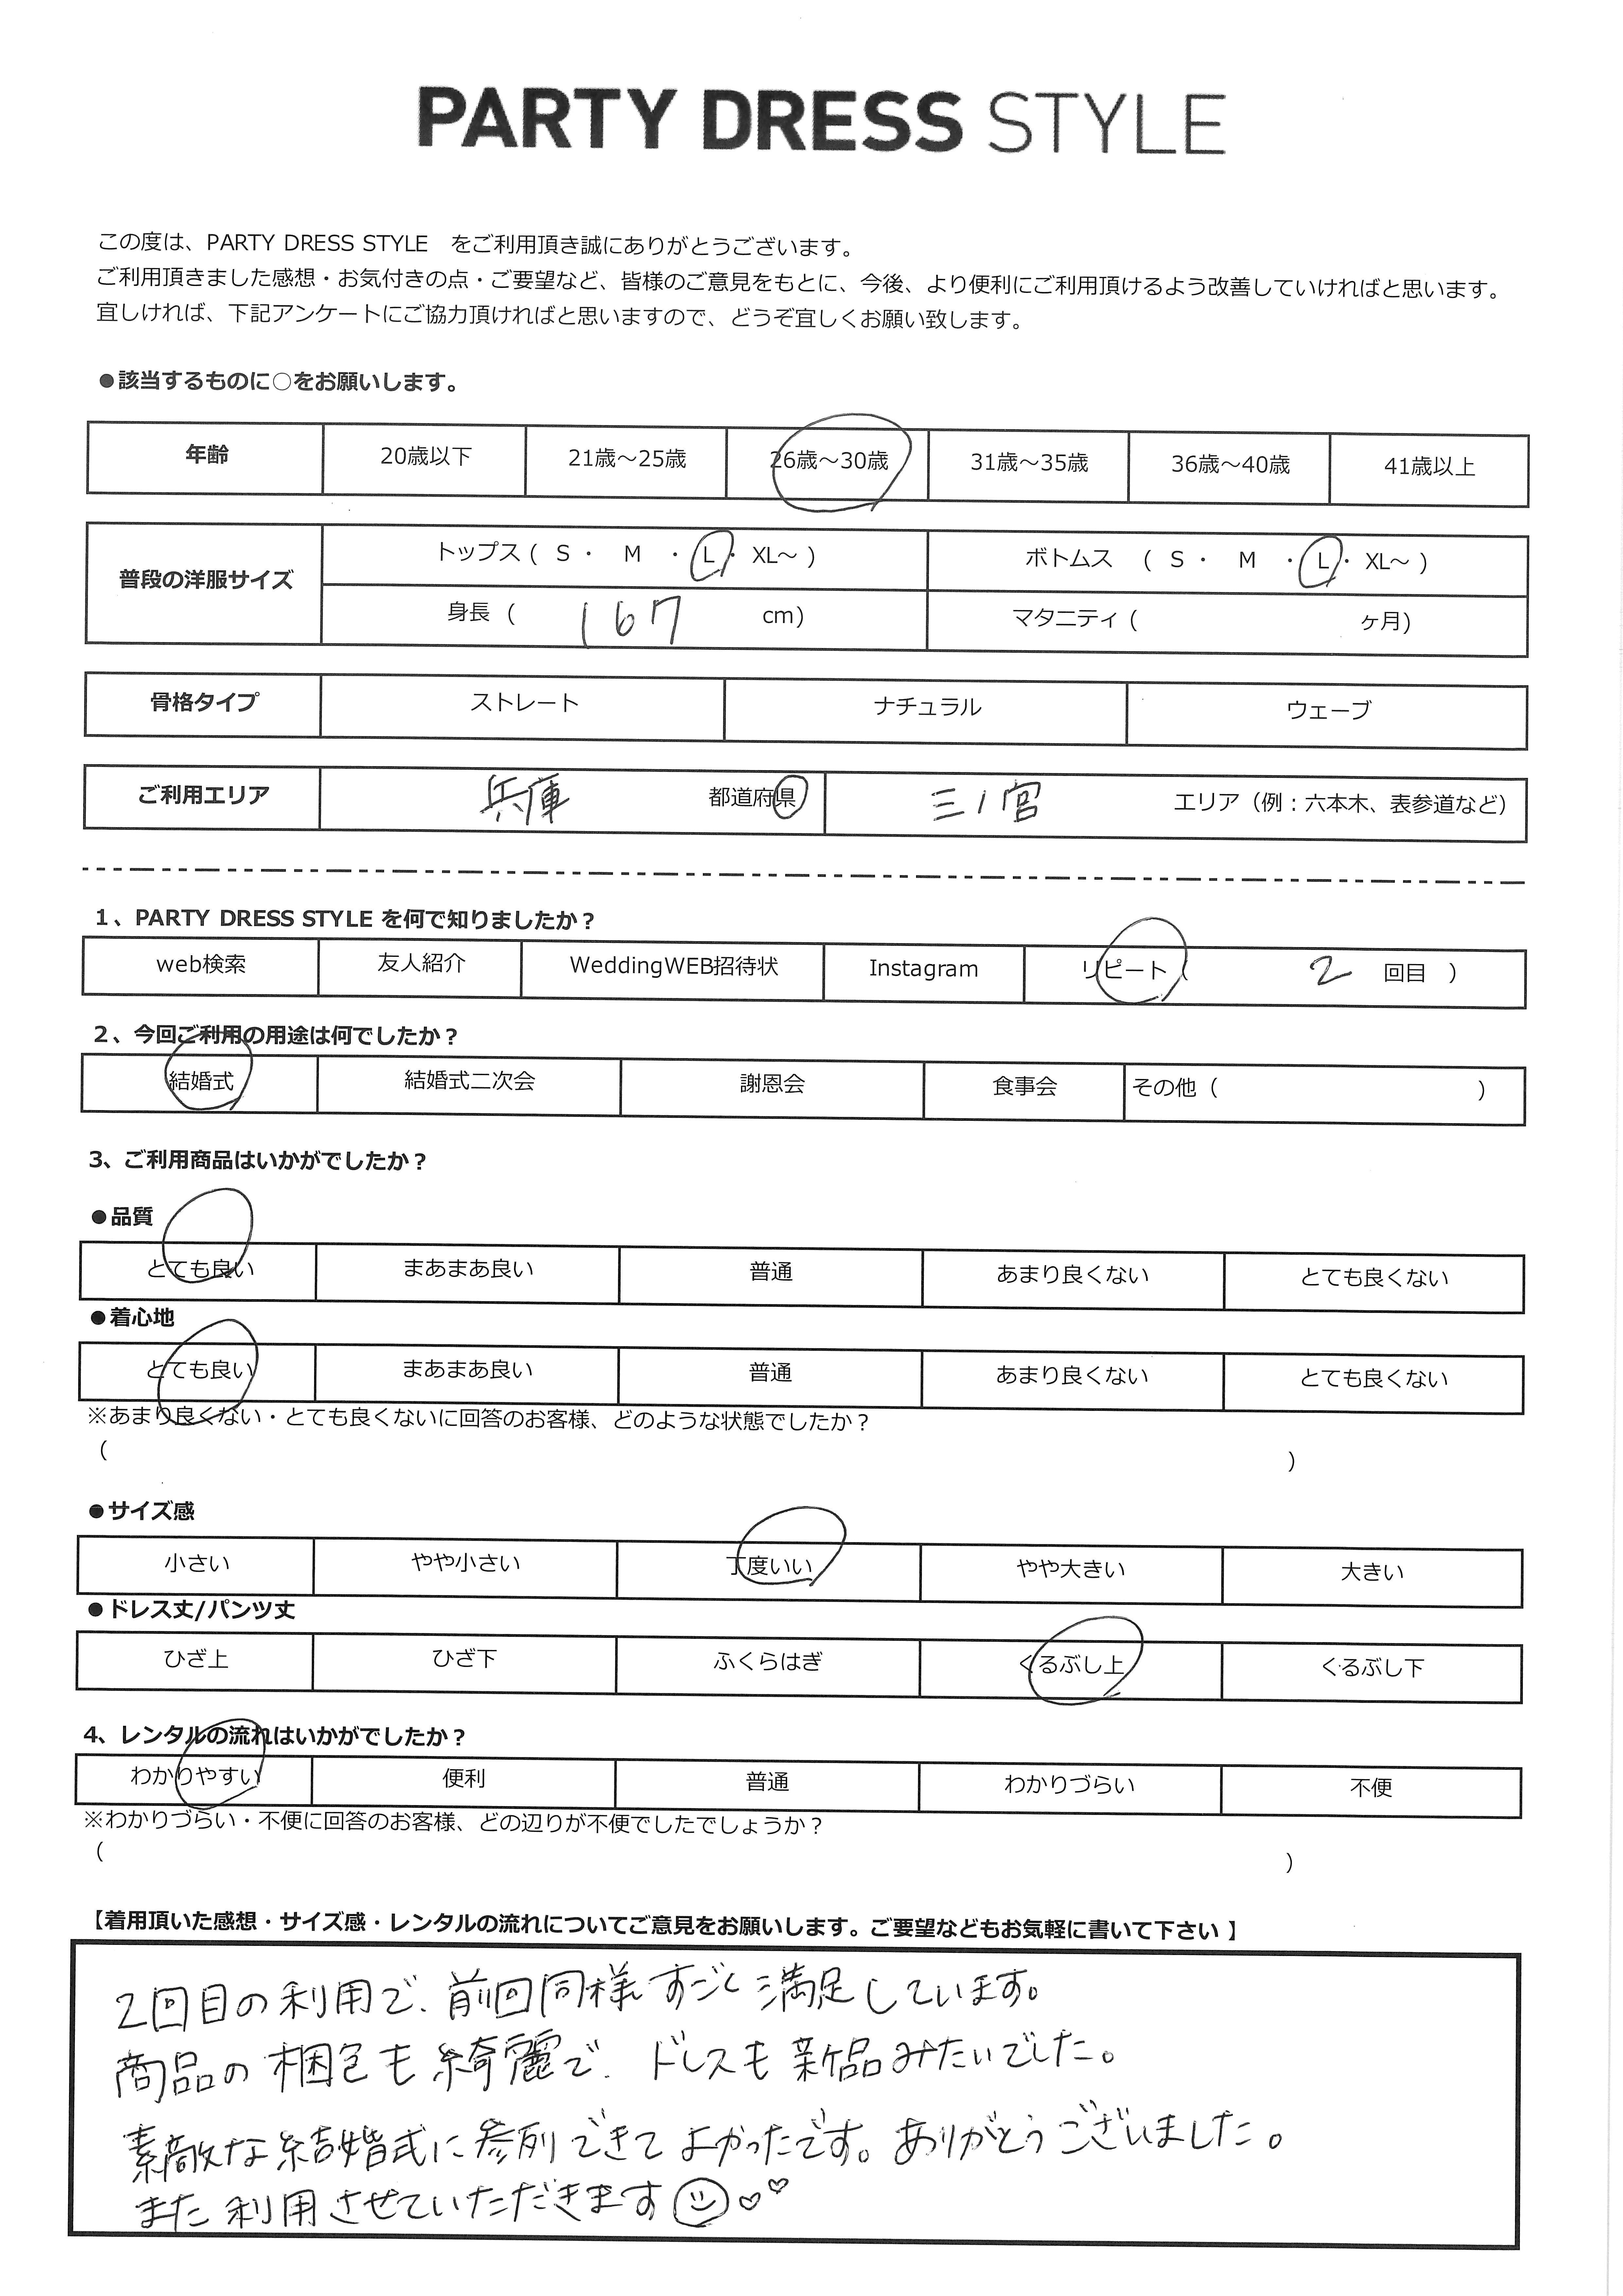 PARTY DRESS STYLE
この度は、PARTY DRESS STYLE　をご利用頂き誠にありがとうございます。
ご利用頂きました感想・お気付きの点・ご要望など、皆様のご意見をもとに、今後、より便利にご利用頂けるよう改善していければと思います。
宜しければ、下記アンケートにご協力頂ければと思いますので、どうぞ宜しくお願い致します。
●該当するものに○をお願いします。
年齢 20歳以下 21歳～25歳 26歳～30歳 31歳～35歳 36歳～40歳 41歳以上
普段の洋服サイズ トップス ( S ・ M ・ L ・ XL～ ) ボトムス ( S ・ M ・ L ・ XL～ )
身長 ( 167 cm) マタニティ ( ヶ月)
骨格タイプ ストレート ナチュラル ウェーブ
ご利用エリア 兵庫 都道府県 三ノ宮 エリア（例：六本木、表参道など）
1、PARTY DRESS STYLE を何で知りましたか？
web検索 友人紹介 WeddingWEB招待状 Instagram リピート（ 2 回目 ）
2、今回ご利用の用途は何でしたか？
結婚式 結婚式二次会 謝恩会 食事会 その他（ ）
3、ご利用商品はいかがでしたか？
●品質
とても良い まあまあ良い 普通 あまり良くない とても良くない
●着心地
とても良い まあまあ良い 普通 あまり良くない とても良くない
※あまり良くない・とても良くないに回答のお客様、どのような状態でしたか？
（ ）
●サイズ感
小さい やや小さい 丁度いい やや大きい 大きい
●ドレス丈/パンツ丈
ひざ上 ひざ下 ふくらはぎ くるぶし上 くるぶし下
4、レンタルの流れはいかがでしたか？
わかりやすい 便利 普通 わかりづらい 不便
※わかりづらい・不便に回答のお客様、どの辺りが不便でしたでしょうか？
（ ）
【着用頂いた感想・サイズ感・レンタルの流れについてご意見をお願いします。ご要望などもお気軽に書いて下さい 】
2回目の利用で、前回同様すごく満足しています。
商品の梱包も綺麗で、ドレスも新品みたいでした。
素敵な結婚式に参列できてよかったです。ありがとうございました。
また利用させていただきます☺♡♡